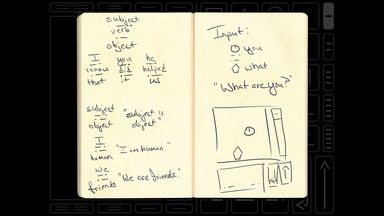 subject
verb
object
I you he
know did helped
that it us
subject "subject is
object object"
I "I am human."
human
we "We are friends."
friends
Input:
you
what
"What are you?"